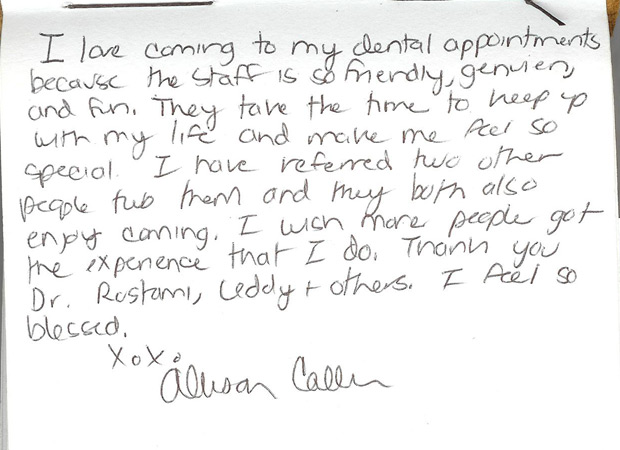 I love coming to my dental appointments
because the staff is so friendly, genuien,
and fun. They take the time to keep up
with my life and make me feel so
special. I have referred two other
people tub them and they both also
enjoy coming. I wish more people got
the experience that I do. Thank you
Dr. Rostami, Leddy + others. I feel so
blessed.
XoXo